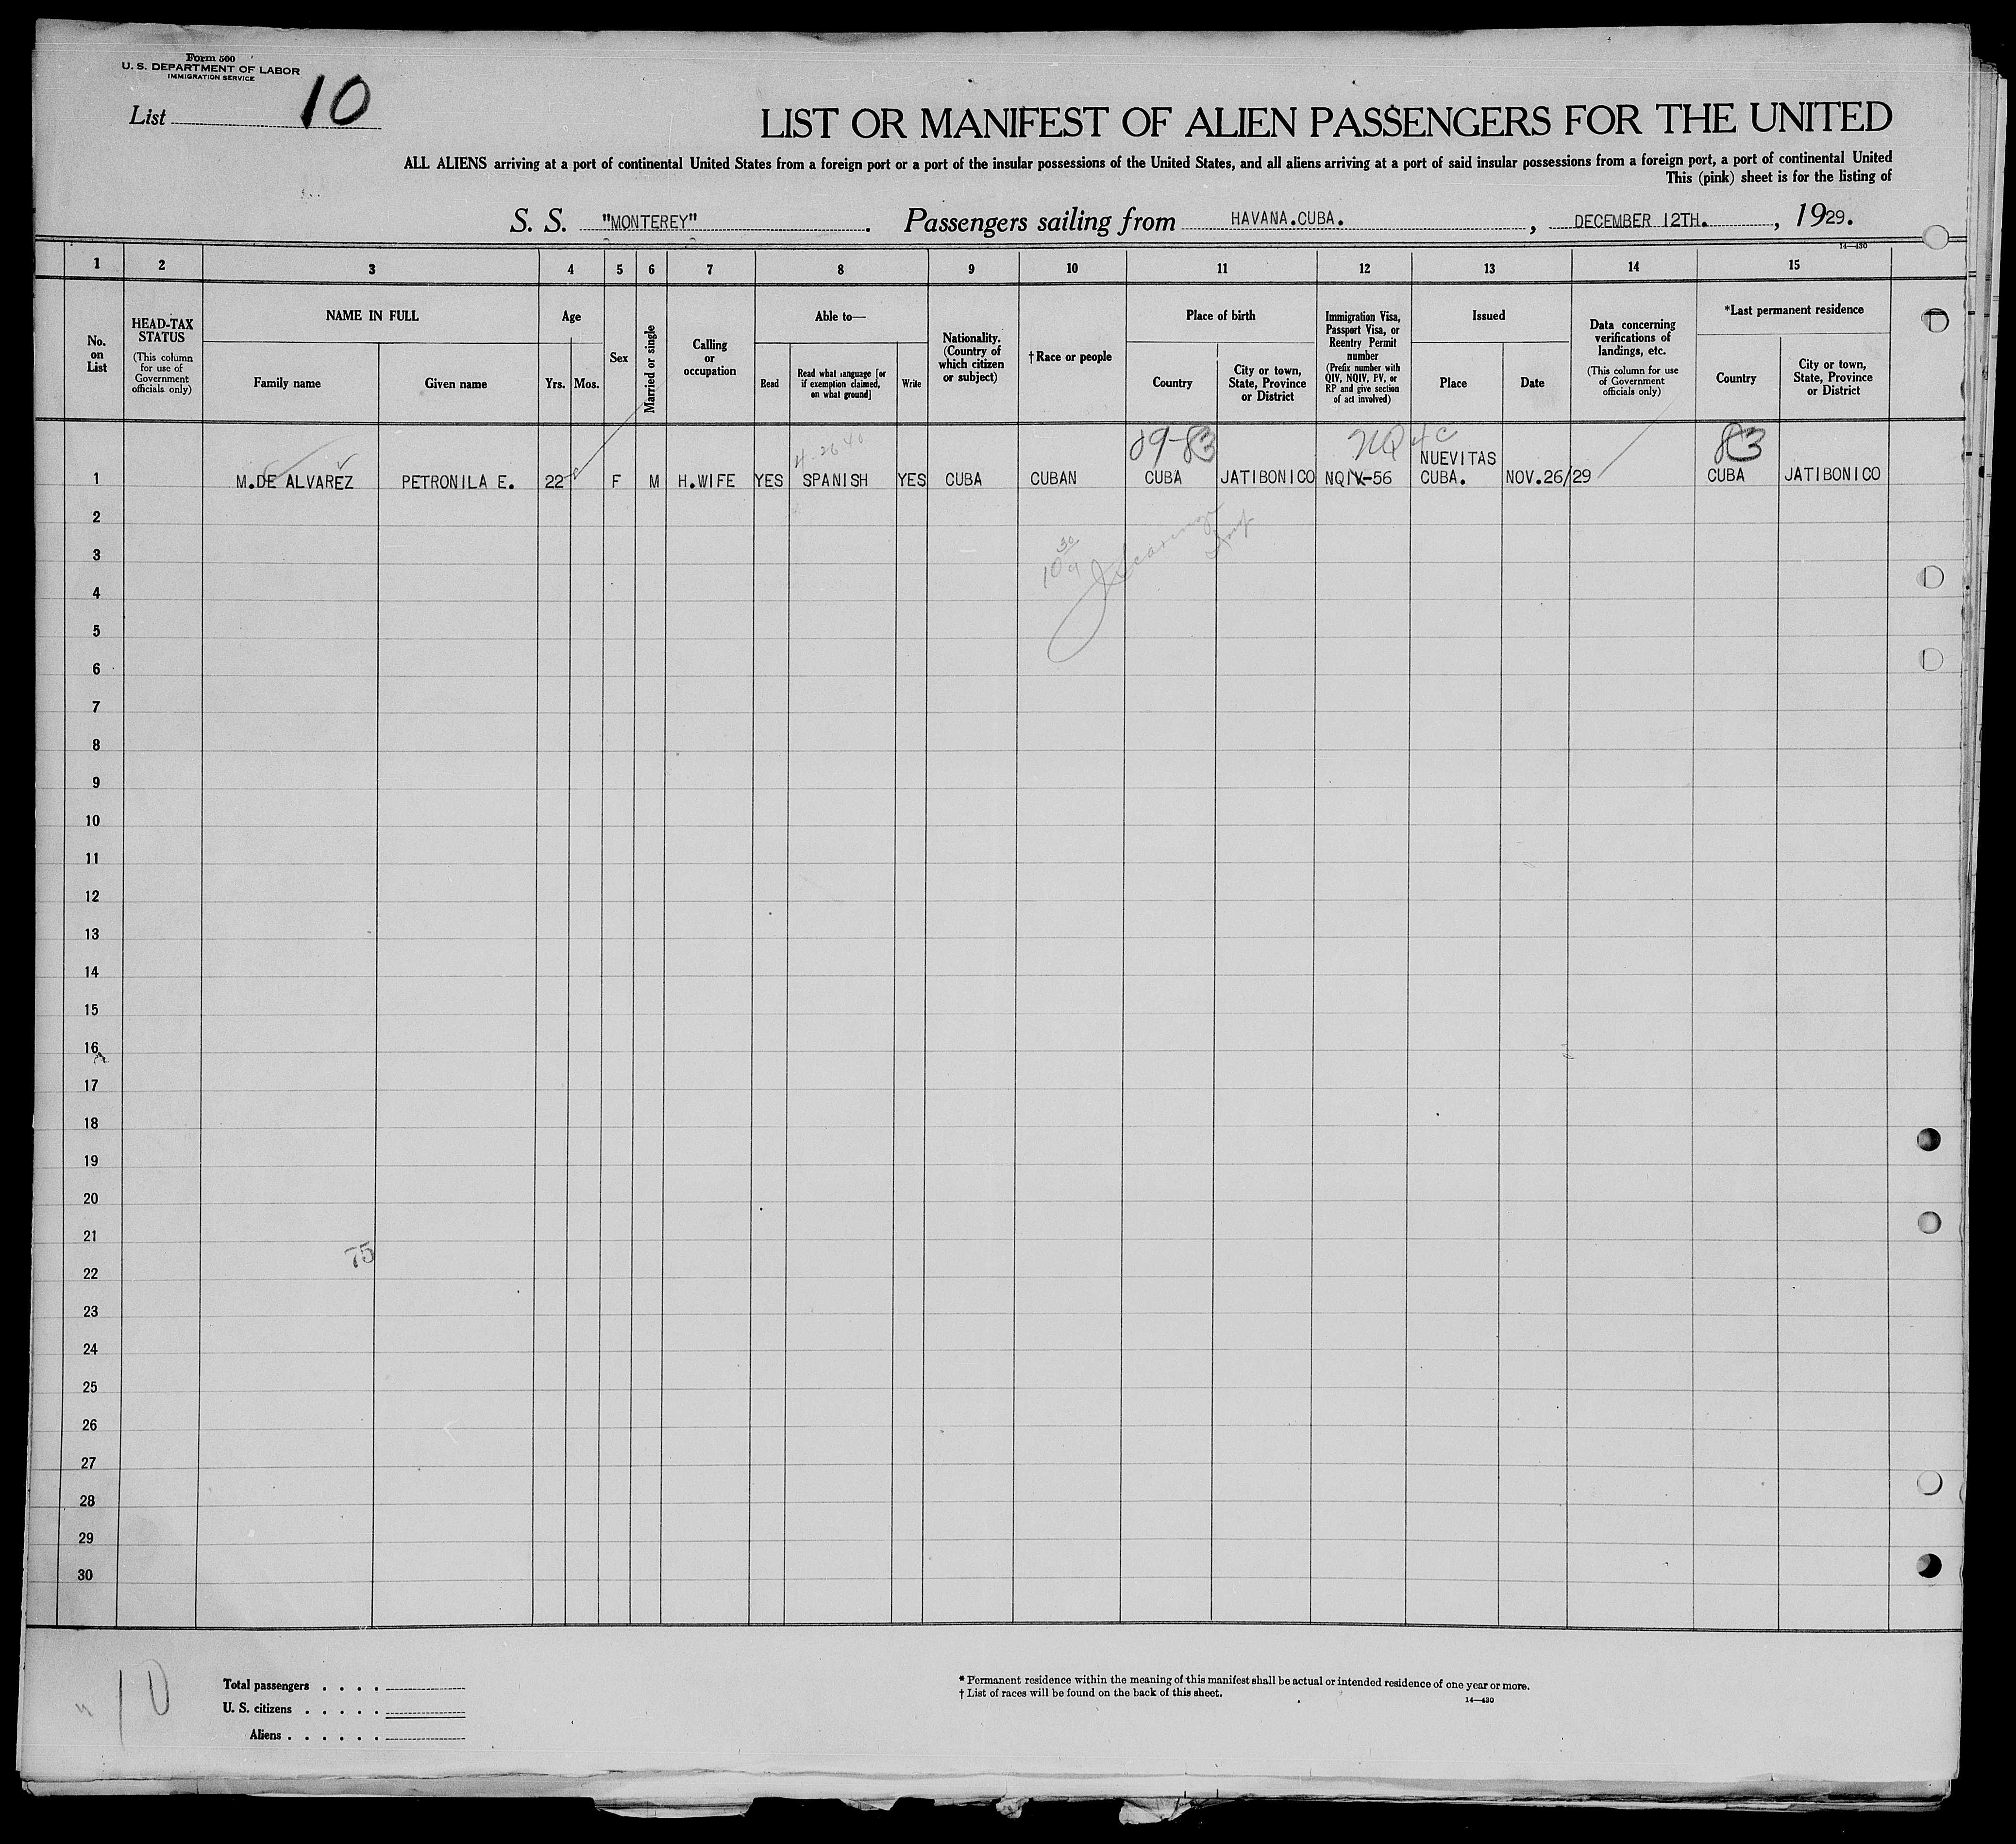 Form 500
U. S. DEPARTMENT OF LABOR
IMMIGRATION SERVICE
List 10
LIST OR MANIFEST OF ALIEN PASSENGERS FOR THE UNITED
ALL ALIENS arriving at a port of continental United States from a foreign port or a port of the insular possessions of the United States, and all aliens arriving at a port of said insular possessions from a foreign port, a port of continental United
This (pink) sheet is for the listing of
S. S. "MONTEREY" . Passengers sailing from HAVANA.CUBA. , DECEMBER 12TH. , 1929.
14—430
1 2 3 4 5 6 7 8 9 10 11 12 13 14 15
No. on List
HEAD-TAX STATUS (This column for use of Government officials only)
NAME IN FULL
Family name
Given name
Age
Yrs. Mos.
Sex
Married or single
Calling or occupation
Able to—
Read
Read what language [or if exemption claimed, on what ground]
Write
Nationality. (Country of which citizen or subject)
†Race or people
Place of birth
Country
City or town, State, Province or District
Immigration Visa, Passport Visa, or Reentry Permit number (Prefix number with QIV, NQIV, PV, or RP and give section of act involved)
Issued
Place
Date
Data concerning verifications of landings, etc. (This column for use of Government officials only)
*Last permanent residence
Country
City or town, State, Province or District
4-26 40 09-83 NQ 4c 83
NUEVITAS
1 M.DE ALVAREZ PETRONILA E. 22 F M H.WIFE YES SPANISH YES CUBA CUBAN CUBA JATIBONICO NQIV-56 CUBA. NOV.26/29 CUBA JATIBONICO
2
3
10 30 a
4
5
6
7
8
9
10
11
12
13
14
15
16
17
18
19
20
21
75
22
23
24
25
26
27
28
29
30
10
Total passengers . . . .
U. S. citizens . . . . .
Aliens . . . . . .
* Permanent residence within the meaning of this manifest shall be actual or intended residence of one year or more.
† List of races will be found on the back of this sheet.
14—430